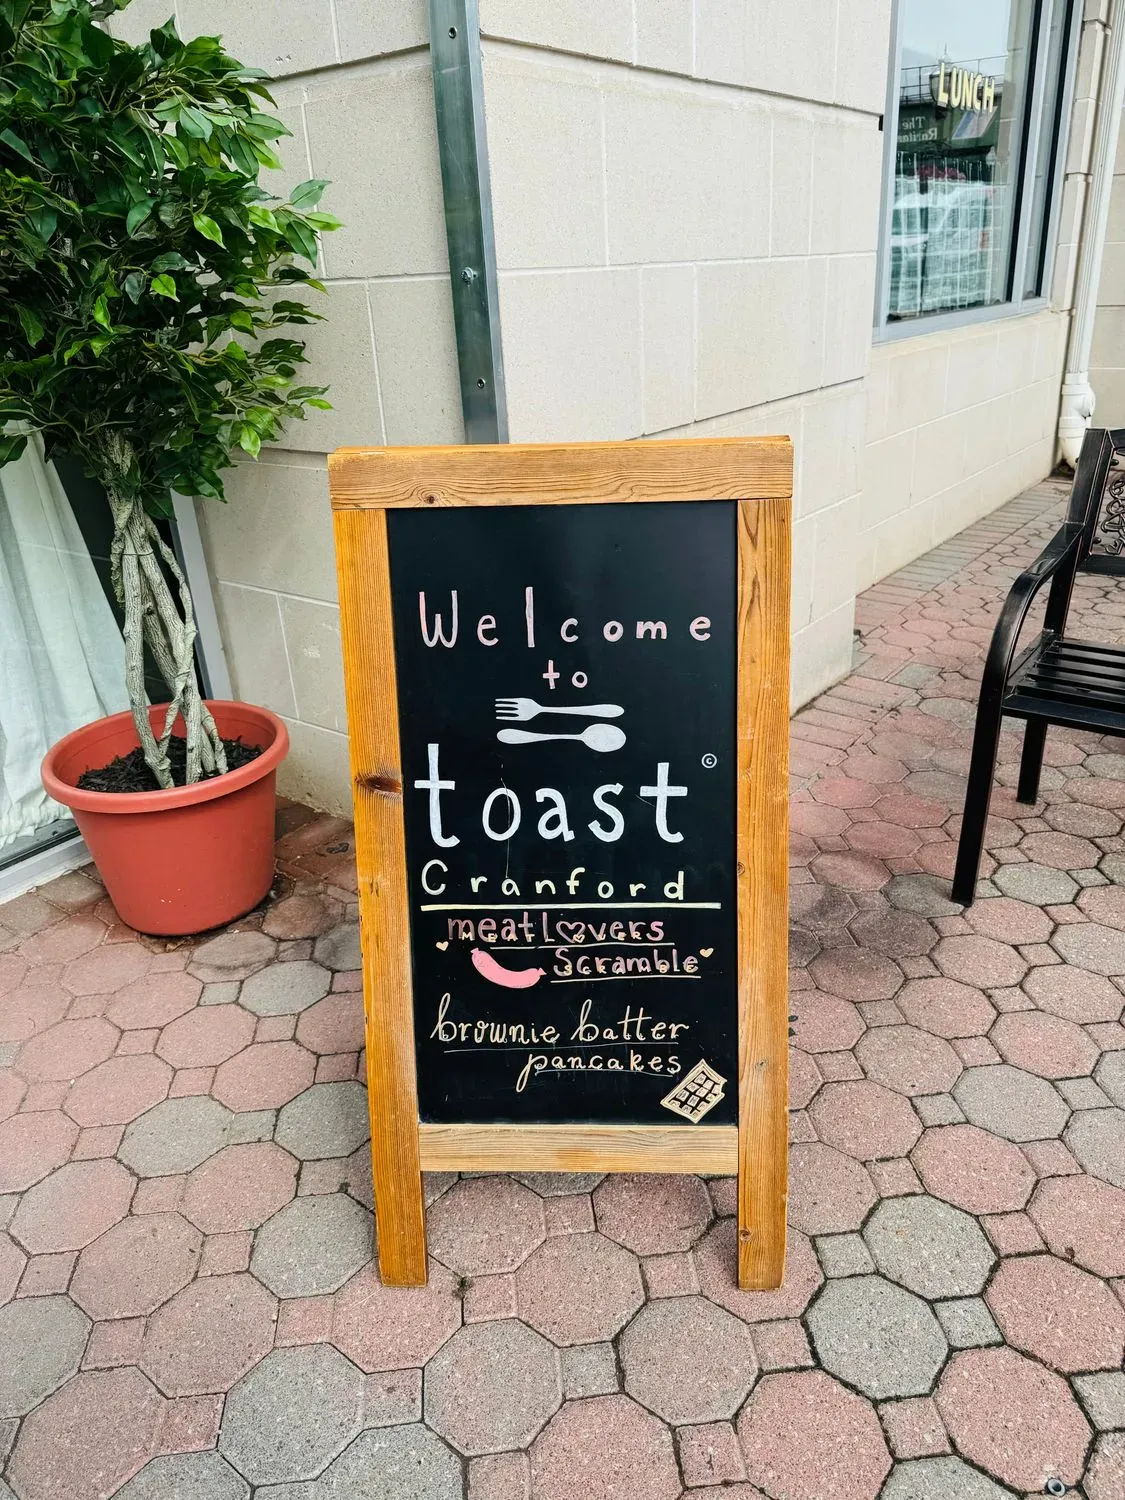 LUNCH
The
Welcome
to
toast ©
Cranford
meatlovers
Scramble
brownie batter
pancakes